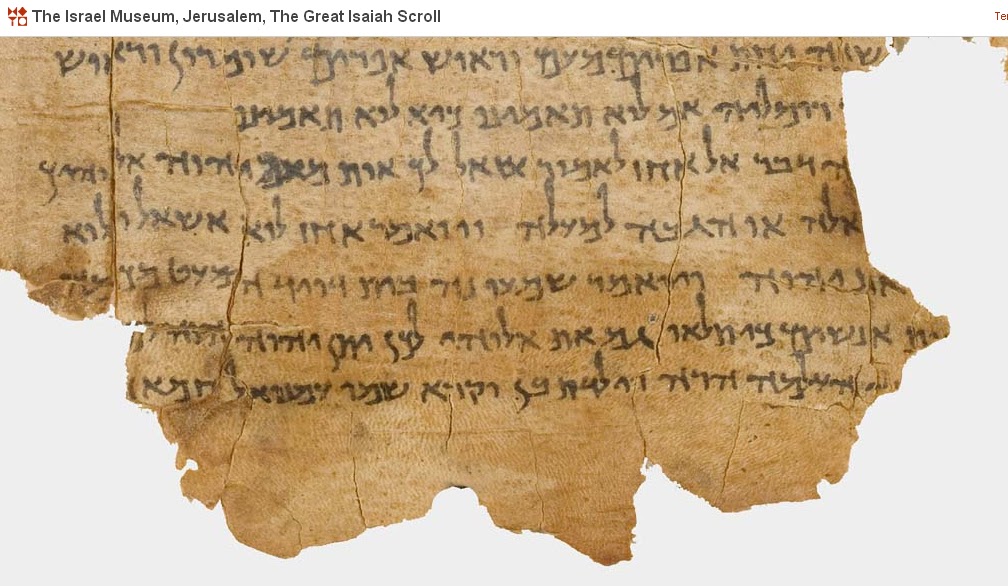 The Israel Museum, Jerusalem, The Great Isaiah Scroll
יחת אפרים מעם וראוש אפרים שומרון וראוש
רומליה אם לא תאמינו כיא לא תאמנו
דבר אל אחז לאמור שאל לך אות מאם יהוה אלוהיך
או הגבה למעלה ויואמר אחז לוא אשאל ולוא
יהוה ויואמר שמעו נא בית דויד המעט
אנשים כי תלאו גם את אלוהי לכן יתן יהוה
העלמה הרה וילדת בן וקרא שמו עמנואל חמא